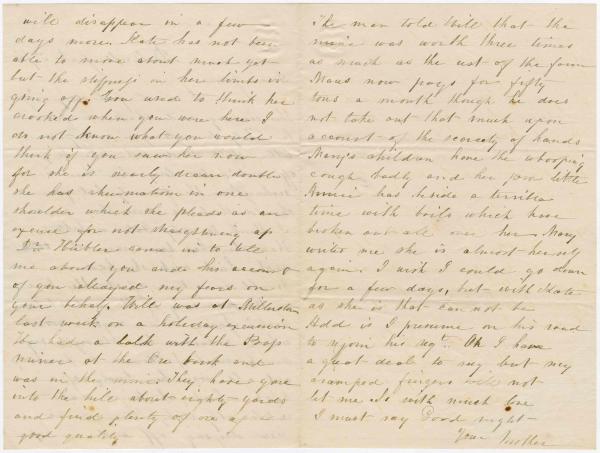 will disappear in a few
days more. Kate has not been
able to move about much yet
but the stiffness in her limbs is
going off. You used to think her
crooked when you were here I
do not know what you would
think if you saw her now
for she is nearly drawn double
she has rheumatism in one
shoulder which she pleads as an
excuse for not straightening up
Dr Hübler came in to tell
me about you and his account
of you allayed my fears on
your behalf. Will was at
last week on a holiday excursion
He had a talk with the Boss
miner at the Ore bank and
was in the mine. They have gone
into the hill about eighty yards
and find plenty of ore of a
good quality
The man told Will that the
mine was worth three times
as much as the rest of the farm
now pays for fifty
tons a month though he does
not take out that much upon
account of the scarcity of hands
Mary's children have the whooping
cough badly and her poor little
has beside a terrible
time with boils which have
broken out all over her. Mary
writes me she is almost herself
again. I wish I could go down
for a few days, but with Kate
as she is that can not be
is I presume on his road
to rejoin his regt. Oh I have
a great deal to say but my
cramped fingers will not
let me so with much love
I must say Good night —
Your Mother